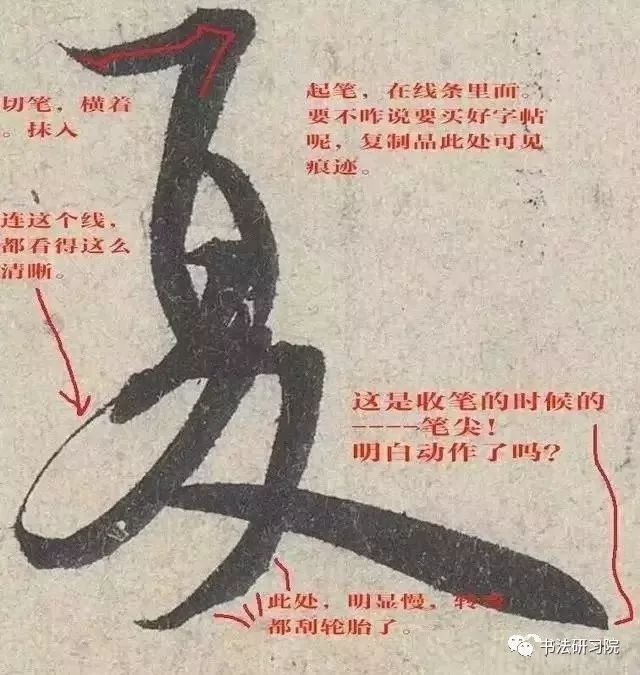 夏
切笔，横着
。抹入
起笔，在线条里面。
要不咋说要买好字帖
呢，复制品此处可见
痕迹。
连这个线，
都看得这么
清晰。
这是收笔的时候的
----笔尖！
明白动作了吗？
此处，明显慢，转弯
都刮轮胎了。
书法研习院